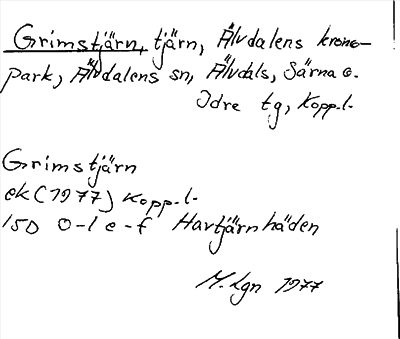 Grimstjärn, tjärn, Älvdalens krono-
park, Älvdalens sn, Älvdals, Särna o.
Idre tg, Kopp.l.
Grimstjärn
ek (1977) Kopp.l.
15D 0-1 e-f Hartjärnhäden
M.Lgn 1977